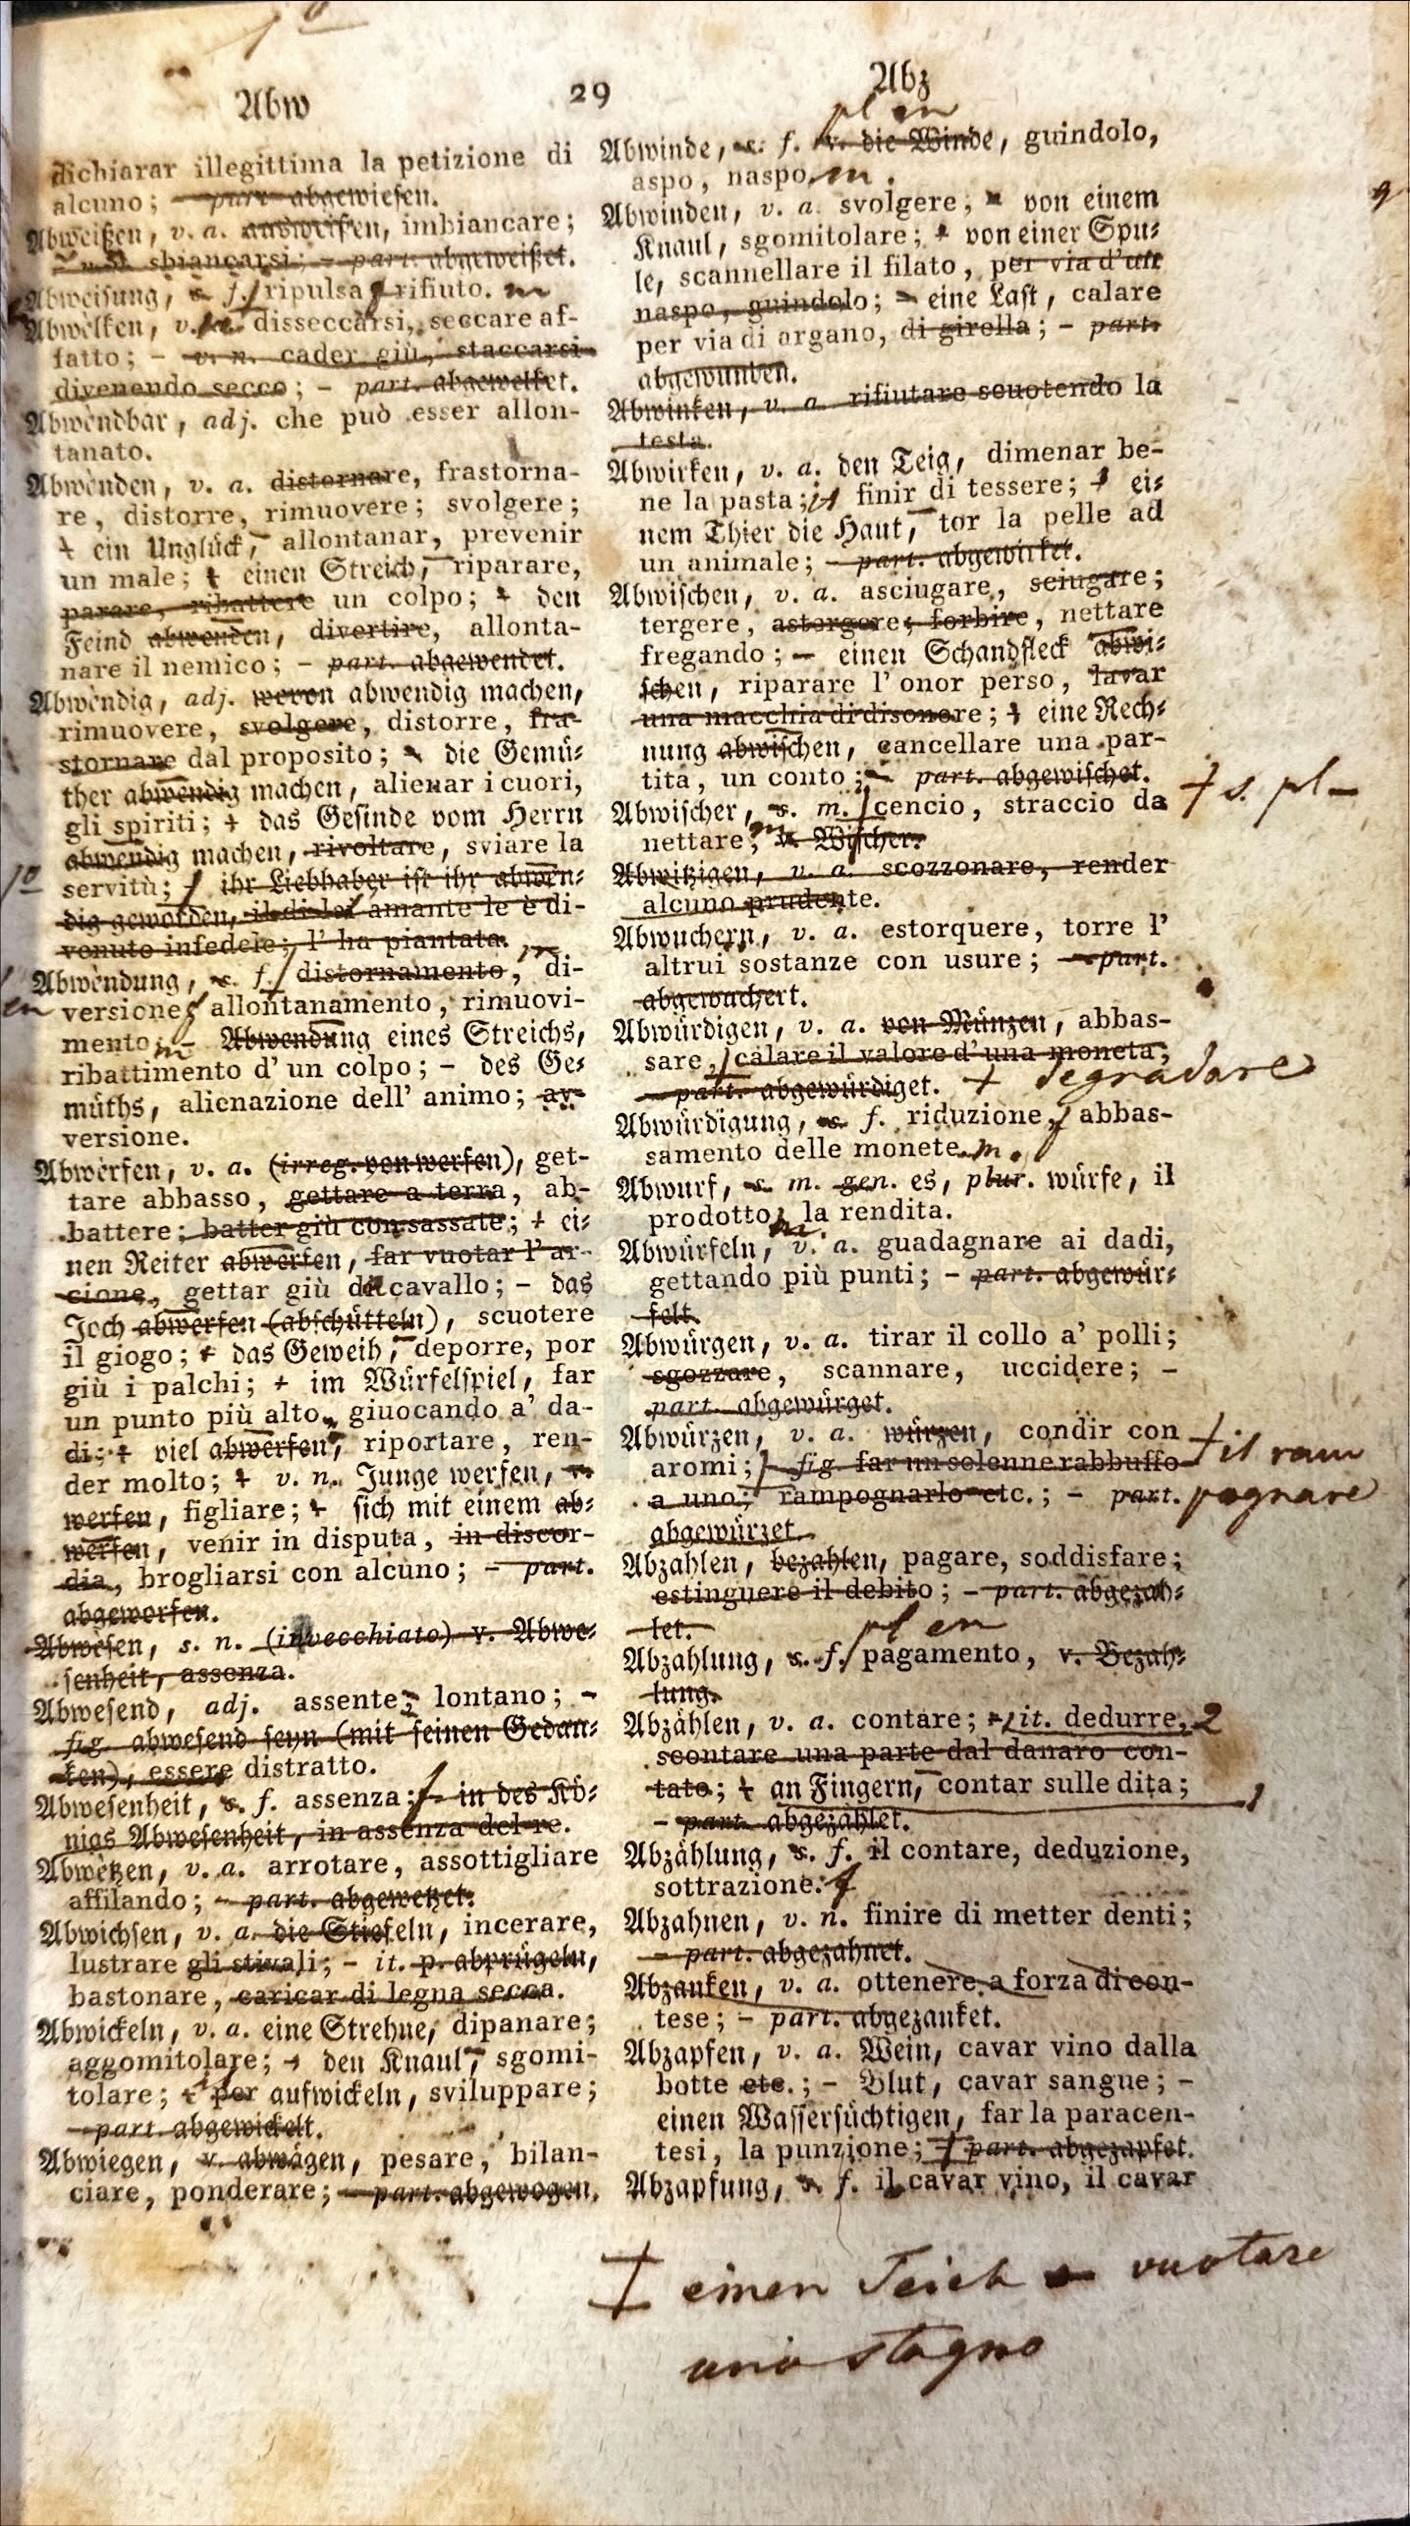 Abw
29
Abz
dichiarar illegittima la petizione di
alcuno; — part. abgewiesen.
Abweißen, v. a. ausweißen, imbiancare;
sbiancarsi; — part. abgeweißet.
Abweisung, s. f. ripulsa rifiuto.
Abwèlken, v. disseccarsi, seccare af-
fatto; — v. n. cader giù, staccarsi
divenendo secco; — part. abgewelket.
Abwèndbar, adj. che può esser allon-
tanato.
Abwènden, v. a. distornare, frastorna-
re, distorre, rimuovere; svolgere;
ein Unglück, allontanar, prevenir
un male; einen Streich, riparare,
parare, ribattere un colpo; den
Feind abwenden, divertire, allonta-
nare il nemico; — part. abgewendet.
Abwèndig, adj. wovon abwendig machen,
rimuovere, svolgere, distorre, fra-
stornare dal proposito; die Gemü-
ther abwendig machen, alienar i cuori,
gli spiriti; das Gesinde vom Herrn
abwendig machen, rivoltare, sviare la
servitù; ihr Liebhaber ist ihr abwen-
dig geworden, il di lei amante le è di-
venuto infedele; l' ha piantata.
Abwèndung, s. f. distornamento, di-
versione allontanamento, rimuovi-
mento; — Abwendung eines Streichs,
ribattimento d' un colpo; — des Ge-
müths, alienazione dell' animo; av-
versione.
Abwèrfen, v. a. (irreg. von werfen), get-
tare abbasso, gettare a terra, ab-
battere; batter giù con sassate; ei-
nen Reiter abwerfen, far vuotar l' ar-
cione, gettar giù dal cavallo; — das
Joch abwerfen (abschütteln), scuotere
il giogo; das Geweih, deporre, por
giù i palchi; im Würfelspiel, far
un punto più alto, giuocando a' da-
di; viel abwerfen, riportare, ren-
der molto; v. n. Junge werfen,
werfen, figliare; sich mit einem ab-
werfen, venir in disputa, in discor-
dia, brogliarsi con alcuno; — part.
abgeworfen.
Abwèsen, s. n. (invecchiato) v. Abwe-
senheit, assenza.
Abwesend, adj. assente, lontano; —
fig. abwesend seyn (mit seinen Gedan-
ken), essere distratto.
Abwesenheit, s. f. assenza; in des Kö-
nigs Abwesenheit, in assenza del re.
Abwètzen, v. a. arrotare, assottigliare
affilando; — part. abgewetzet.
Abwichsen, v. a. die Stiefeln, incerare,
lustrare gli stivali; — it. p. abprügeln,
bastonare, caricar di legna secca.
Abwickeln, v. a. eine Strehne, dipanare;
aggomitolare; den Knaul, sgomi-
tolare; per aufwickeln, sviluppare;
— part. abgewickelt.
Abwiegen, v. abwägen, pesare, bilan-
ciare, ponderare; — part. abgewogen.
pl en
Abwinde, s. f. v. die Winde, guindolo,
aspo, naspo. m.
Abwinden, v. a. svolgere; von einem
Knaul, sgomitolare; von einer Spu-
le, scannellare il filato, per via d'un
naspo, guindolo; eine Last, calare
per via di argano, di girella; — part.
abgewunden.
Abwinken, v. a. rifiutare scuotendo la
testa.
Abwirken, v. a. den Teig, dimenar be-
ne la pasta; it finir di tessere; ei-
nem Thier die Haut, tor la pelle ad
un animale; — part. abgewirket.
Abwischen, v. a. asciugare, sciugare;
tergere, astergere; forbire, nettare
fregando; — einen Schandfleck abwi-
schen, riparare l' onor perso, lavar
una macchia di disonore; eine Rech-
nung abwischen, cancellare una par-
tita, un conto; — part. abgewischet.
Abwischer, s. m. cencio, straccio da
nettare, v. Wischer.
† s. pl –
Abwitzigen, v. a. scozzonare, render
alcuno prudente.
Abwuchern, v. a. estorquere, torre l'
altrui sostanze con usure; — part.
abgewuchert.
Abwürdigen, v. a. von Münzen, abbas-
sare, calare il valore d' una moneta;
— part. abgewürdiget. + degradare
Abwürdigung, s. f. riduzione, abbas-
samento delle monete. m.
Abwurf, s. m. gen. es, plur. würfe, il
prodotto, la rendita.
Abwürfeln, v. a. guadagnare ai dadi,
gettando più punti; — part. abgewür-
felt.
Abwürgen, v. a. tirar il collo a' polli;
sgozzare, scannare, uccidere; —
part. abgewürget.
Abwürzen, v. a. würzen, condir con
aromi; fig. far un solenne rabbuffo
a uno; rampognarlo etc.; — part.
abgewürzet.
† it ram
pognare
Abzahlen, bezahlen, pagare, soddisfare;
estinguere il debito; — part. abgezah-
let.
pl en
Abzahlung, s. f. pagamento, v. Bezah-
lung.
Abzählen, v. a. contare; it. dedurre, 2
scontare una parte dal danaro con-
tato; an Fingern, contar sulle dita; 1
— part. abgezählet.
Abzählung, s. f. il contare, deduzione,
sottrazione. f
Abzahnen, v. n. finire di metter denti;
— part. abgezahnet.
Abzanken, v. a. ottenere a forza di con-
tese; — part. abgezanket.
Abzapfen, v. a. Wein, cavar vino dalla
botte etc.; — Blut, cavar sangue; —
einen Wassersüchtigen, far la paracen-
tesi, la punzione; † part. abgezapfet.
Abzapfung, s. f. il cavar vino, il cavar
‡ einen Teich – vuotare
uno stagno